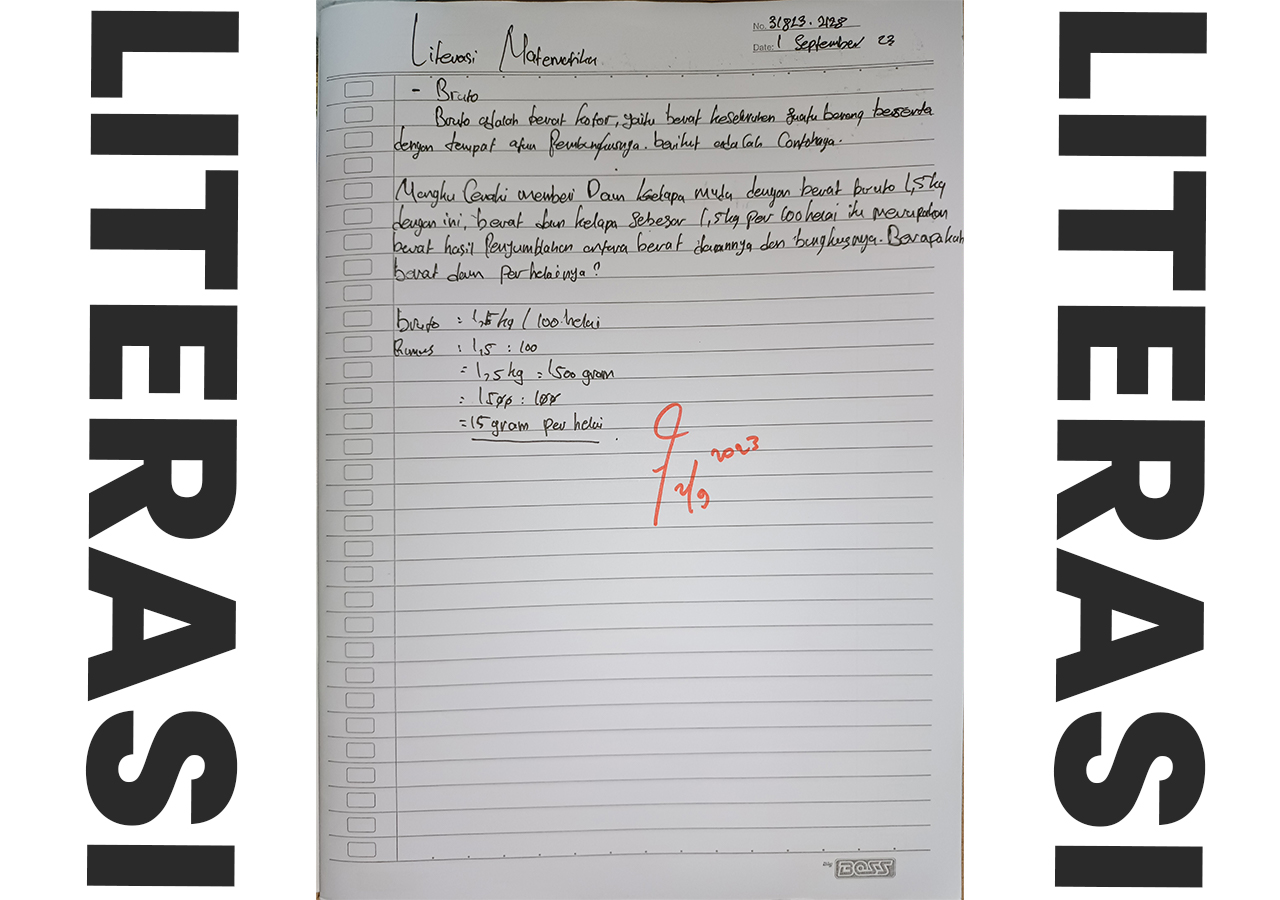 LITERASI
Literasi Matematika
No. 31813.2128
Date: 1 September 23
- Bruto
Bruto adalah berat kotor, yaitu berat keseluruhan suatu barang beserta
dengan tempat atau Pembungkusnya. berikut adalah Contohnya.
Mangku membeli Daun kelapa muda dengan berat bruto 1,5 kg
dengan ini, berat daun kelapa sebesar 1,5kg per 100 helai itu merupakan
berat hasil Penjumlahan antara berat daunnya dan bungkusnya. Berapakah
berat daun per helainya?
bruto = 1,5 kg / 100 helai
Rumus : 1,5 : 100
= 1,5 kg = 1500 gram
= 1500 : 100
= 15 gram per helai
2/9 2023
BOSS
LITERASI